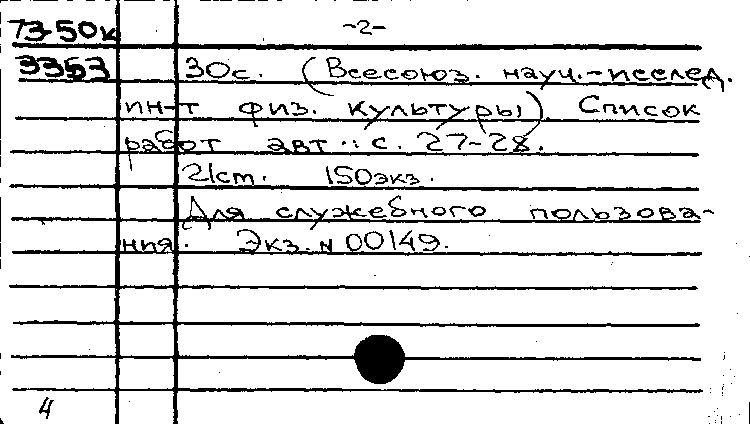 73-50к -2-
3353 30с. (Всесоюз. науч.-исслед.
ин-т физ. культуры). Список
работ авт.: с. 27-28.
21см. 150экз.
Для служебного пользова-
ния. Экз. N 00149.
4